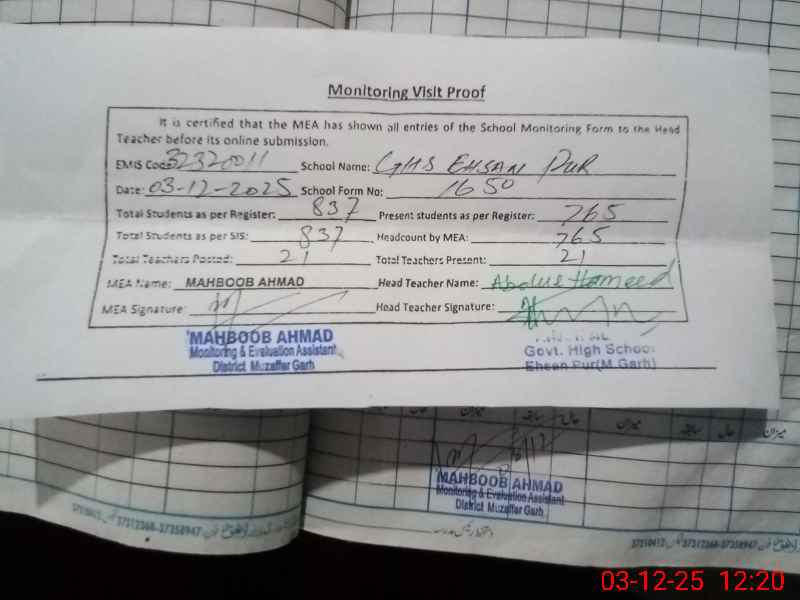 Monitoring Visit Proof
It is certified that the MEA has shown all entries of the School Monitoring Form to the Head
Teacher before its online submission.
EMIS Code: 32320011 School Name: GHS EHSAN PUR
Date: 03-12-2025 School Form No: 1650
Total Students as per Register: 837 Present students as per Register: 765
Total Students as per SIS: 837 Headcount by MEA: 765
Total Teachers Posted: 21 Total Teachers Present: 21
MEA Name: MAHBOOB AHMAD Head Teacher Name: Abdul Hameed
MEA Signature: Head Teacher Signature:
MAHBOOB AHMAD
Monitoring & Evaluation Assistant
District Muzaffar Garh
Govt. High School
Ehsan Pur(M Garh)
میزان حال سابقہ میزان حال سابقہ میزان
MAHBOOB AHMAD
Monitoring & Evaluation Assistant
District Muzaffar Garh
37310412 37312368-37358947
37310412 37312368-37358947
03-12-25 12:20